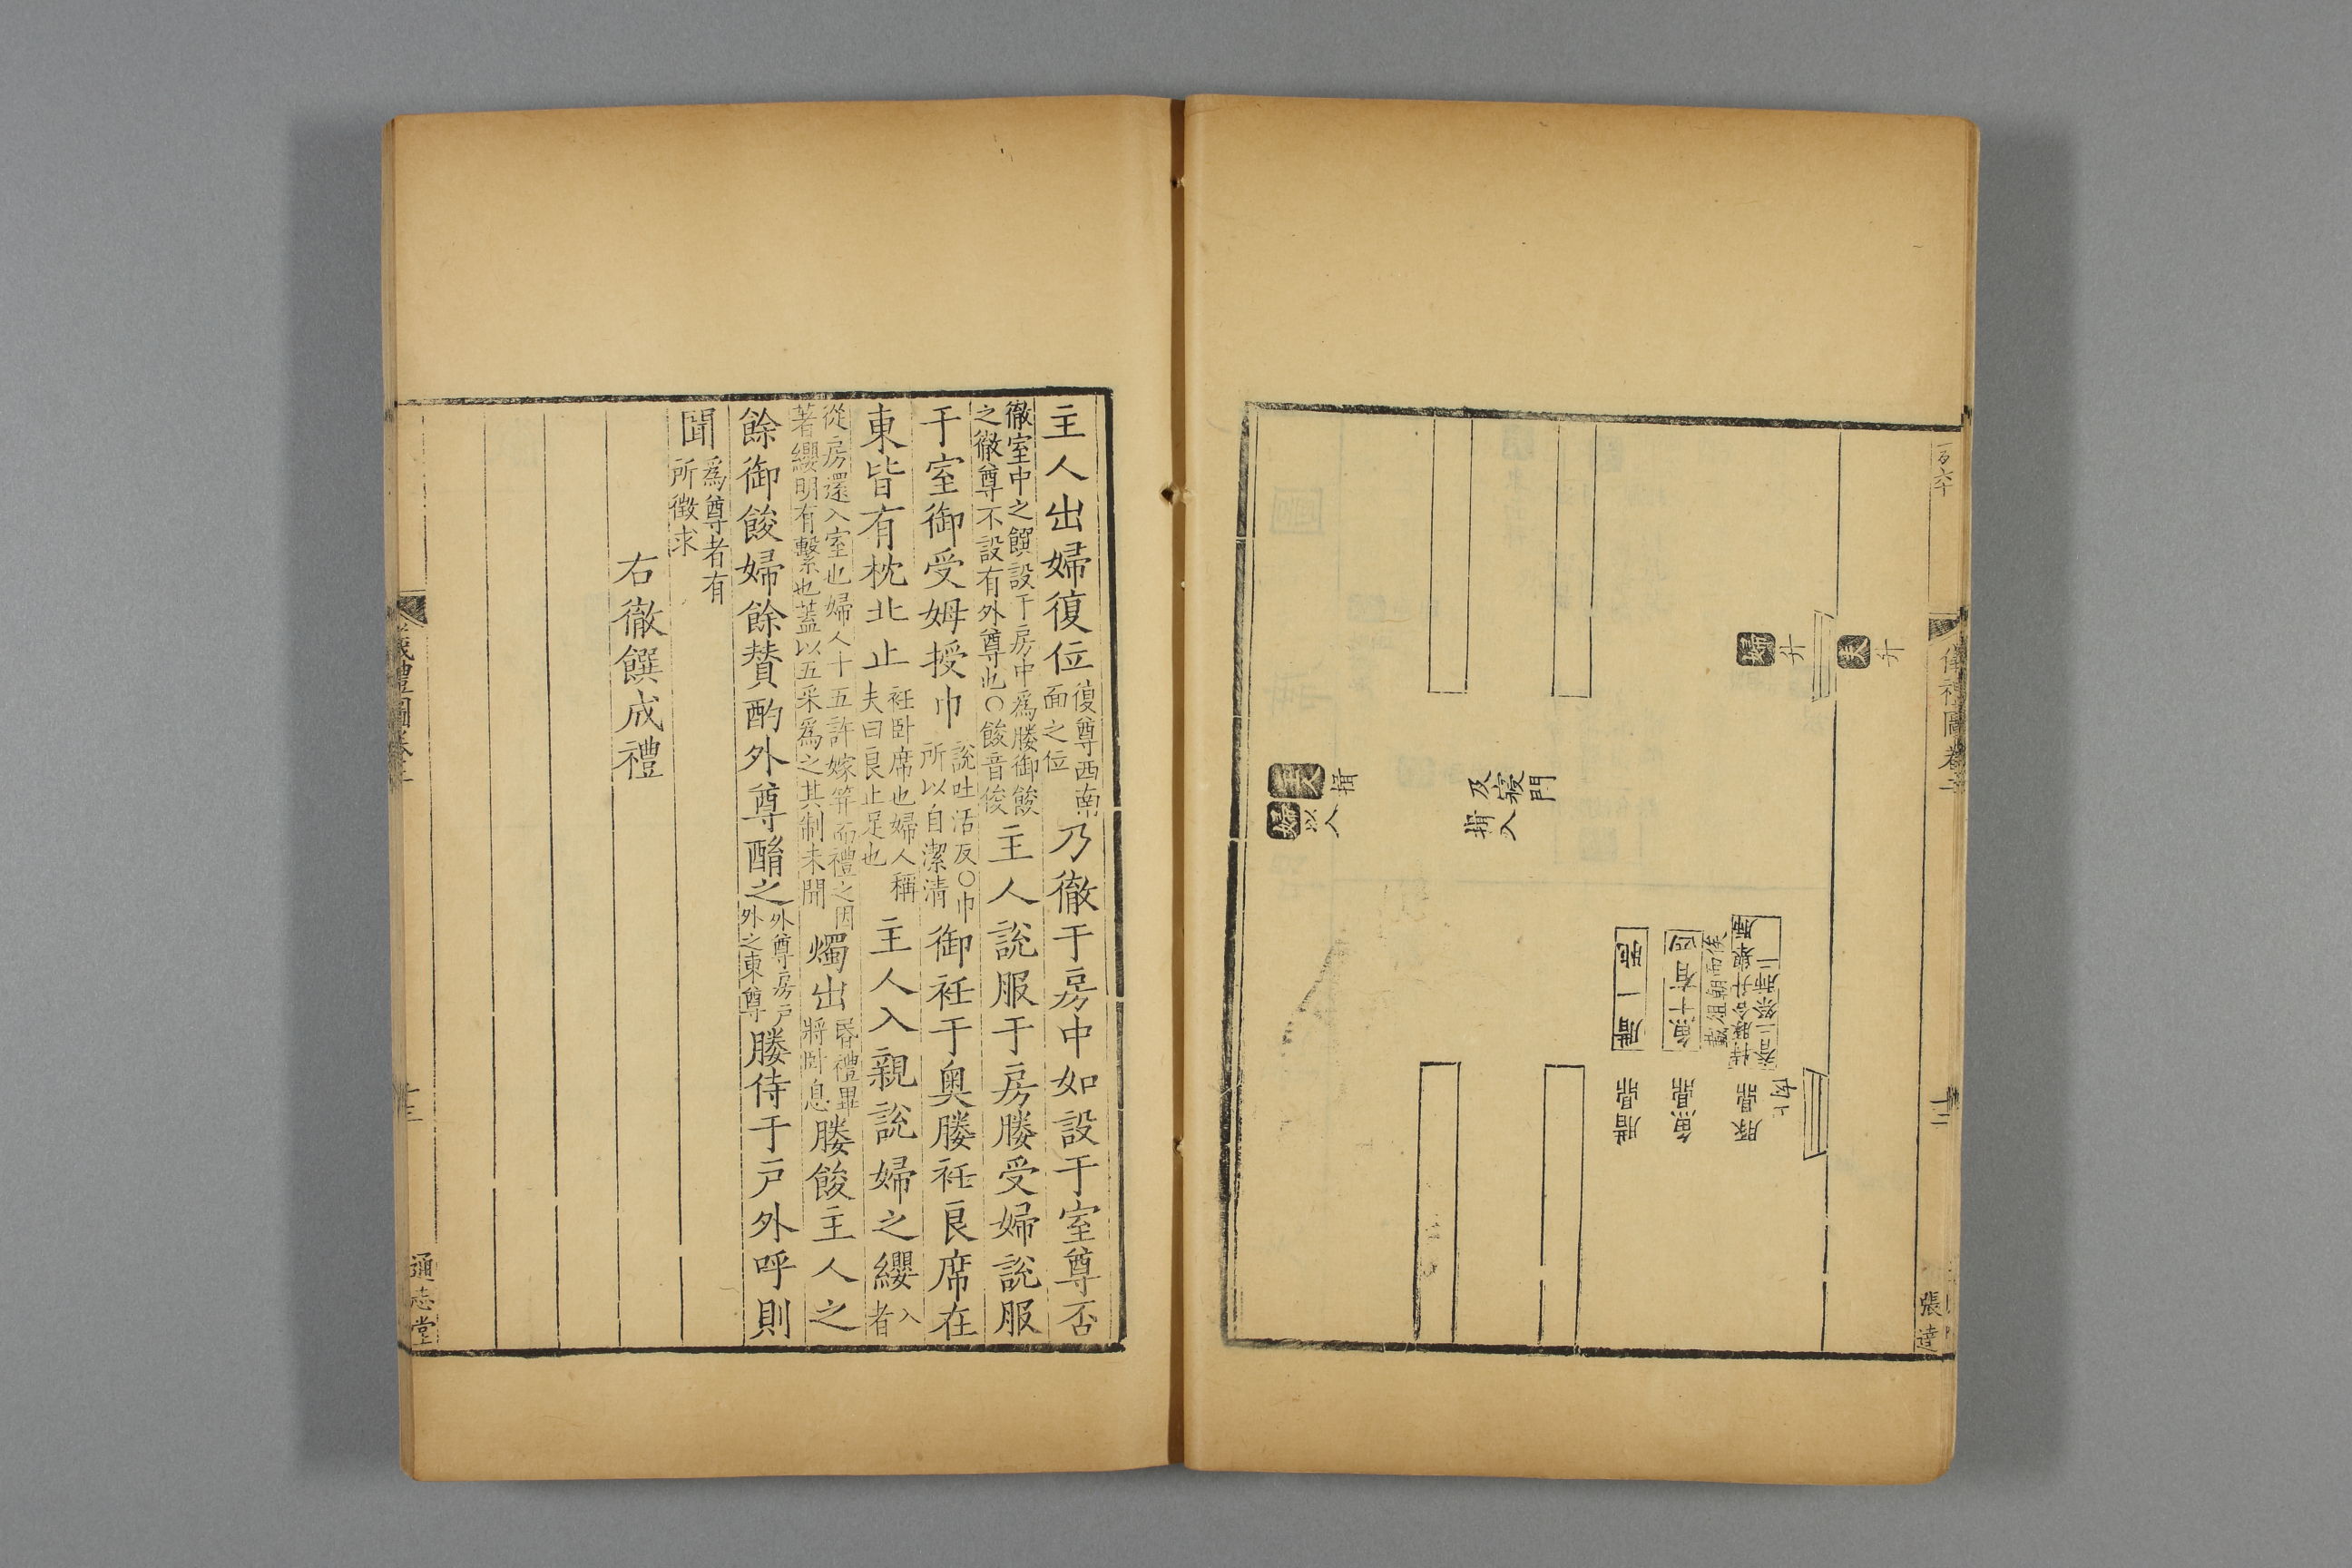 百六十
儀禮圖卷二
十二
張達
夫
升
婦
升
北面
豚鼎
魚鼎
腊鼎
魚十有四
腊一肫
及寢門
揖入
主人
揖
婦
以入
主人出婦復位復尊西南
面之位乃徹于房中如設于室尊否
徹室中之饌設于房中爲媵御餕
之徹尊不設有外尊也〇餕音俊主人說服于房媵受婦說服
于室御受姆授巾說吐活反〇巾
所以自潔清御衽于奥媵衽良席在
東皆有枕北止衽卧席也婦人稱
夫曰良止足也主人入親說婦之纓入
者
從房還入室也婦人十五許嫁笄而禮之因
著纓明有繫也蓋以五采爲之其制未聞燭出昬禮畢
將卧息媵餕主人之
餘御餕婦餘賛酌外尊酳之外尊房戶
外之東尊媵侍于戶外呼則
聞爲尊者有
所徵求
右徹饌成禮
儀禮圖卷二
十三
通志堂